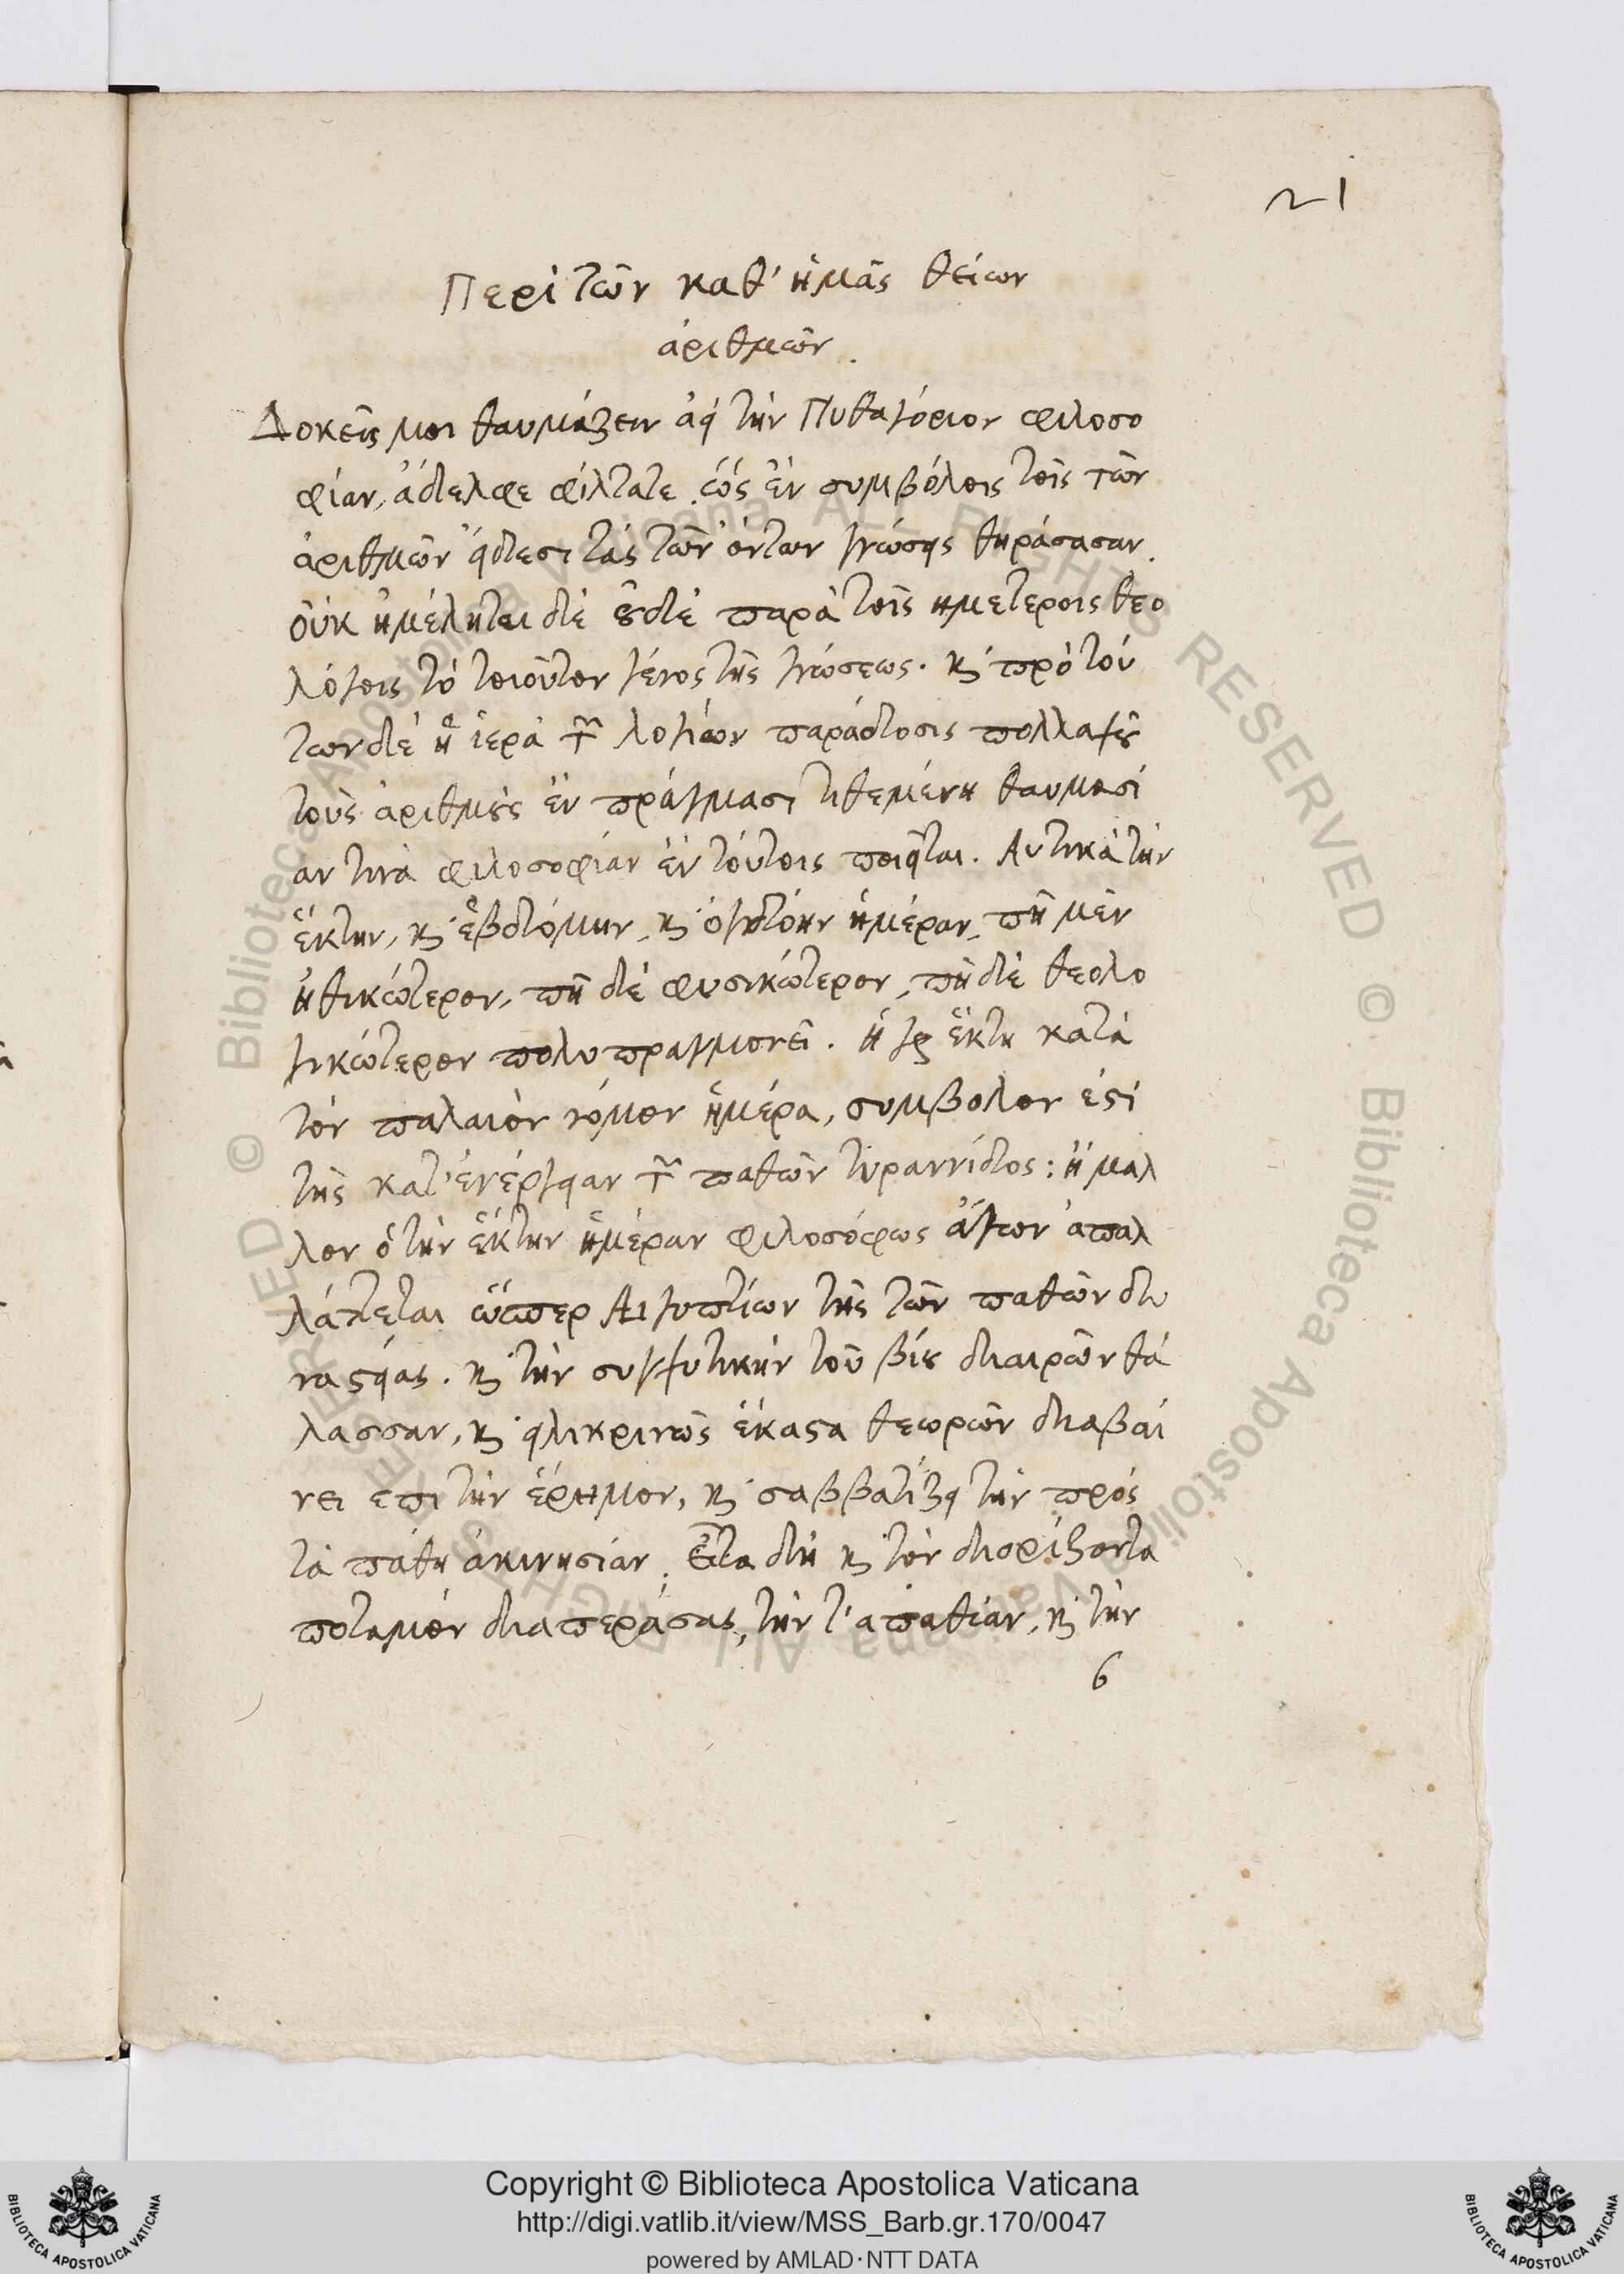 21
Περὶ τῶν καθ' ἡμᾶς θείων
ἀριθμῶν.
Δοκεῖς μοι θαυμάζειν ἀεὶ τὴν Πυθαγόριον φιλοσο
φίαν, ἀδελφε φίλτατε, ὡς ἐν συμβόλοις τοῖς τῶν
ἀριθμῶν εἴδεσι τὰς τῶν ὄντων γνώσεις θηράσασαν.
οὐκ ἠμέληται δὲ οὐδὲ παρὰ τοῖς ημετεροις θεο
λόγοις τὸ τοιοῦτον γένος τῆς γνώσεως. καὶ πρὸ τού
των δὲ ἡ ἱερὰ τῶν λογίων παράδοσις πολλαχοῦ
τοὺς ἀριθμοὺς ἐν πράγμασι τιθεμένη θαυμασί
αν τινὰ φιλοσοφίαν ἐν τούτοις ποιεῖται. Αυτικὰ τὴν
ἕκτην, καὶ ἑβδόμην, καὶ ὀγδόην ἡμέραν, πῆ μὲν
ἠθικώτερον, πῆ δὲ φυσικώτερον, πῆ δὲ θεολο
γικώτερον πολυπραγμονεῖ. ἡ γὰρ ἕκτη κατὰ
τὸν παλαιὸν νόμον ἡμέρα, συμβολον ἐστὶ
τῆς κατ' ἐνέργειαν τῶν παθῶν τυραννίδος: ἢ μαλ
λον ὁ τὴν ἕκτην ἡμέραν φιλοσόφως ἄγων ἀπαλ
λάττεται ὥσπερ Αιγυπτίων τῆς τῶν παθῶν δυ
ναστείας. καὶ τὴν συγχυτικὴν τοῦ βίου διαιρῶν θά
λασσαν, καὶ εἰλικρινῶς ἕκαστα θεωρῶν διαβαί
νει επι τὴν ἔρημον, καὶ σαββατίζει τὴν πρός
τὰ πάθη ἀκινησίαν. Εἶτα δὴ καὶ τὸν διορίζοντα
ποταμὸν διαπεράσας, τὴν τ' απαθίαν, καὶ τὴν
6
© Biblioteca Apostolica Vaticana ALL RIGHTS RESERVED
Copyright © Biblioteca Apostolica Vaticana
http://digi.vatlib.it/view/MSS_Barb.gr.170/0047
powered by AMLAD·NTT DATA
BIBLIOTECA APOSTOLICA VATICANA
BIBLIOTECA APOSTOLICA VATICANA